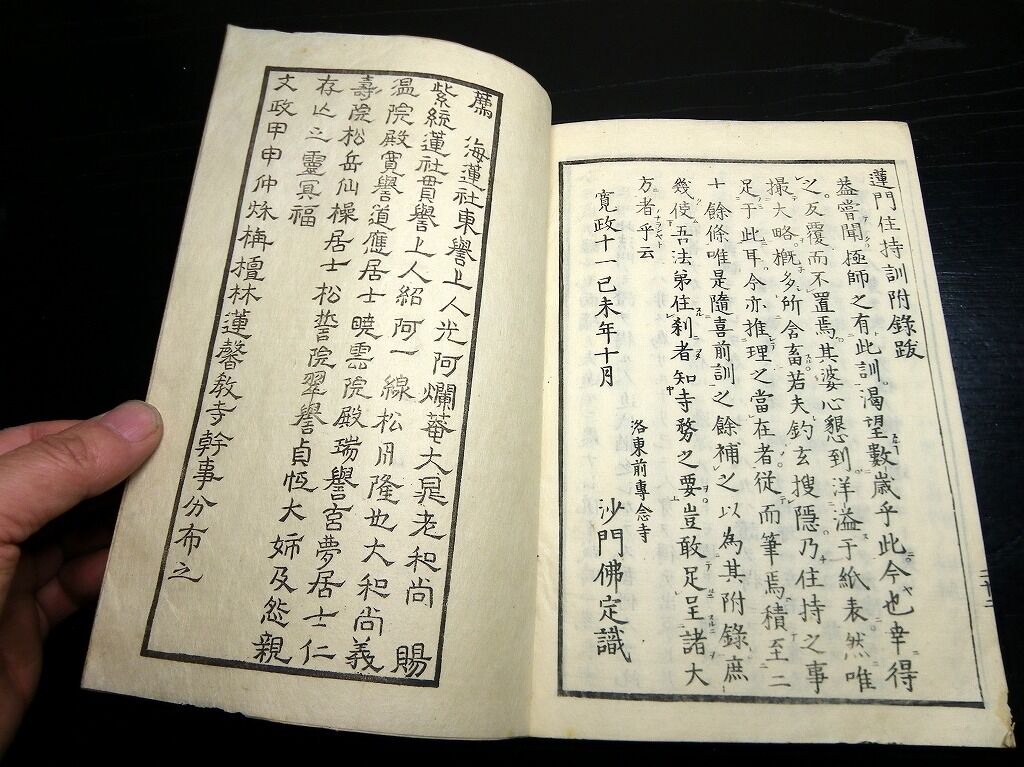 蓮門住持訓附錄跋
蓋嘗聞極師之有此訓渴望數歲乎此今也幸得
之反覆而不置焉其婆心懇到洋溢于紙表然唯
撮大略概多所含畜若夫鈎玄搜隱乃住持之事
足于此耳今亦推理之當在者從而筆焉積至二
十餘條唯是隨喜前訓之餘補之以為其附錄庶
幾使吾法弟住刹者知寺務之要豈敢足呈諸大
方者乎云
寬政十一己未年十月
洛東前專念寺
沙門佛定識
薦海蓮社東譽上人光阿爛菴大晁老和尚賜
紫統蓮社貫譽上人紹阿一線松月隆也大和尚義
溫院殿寬譽道應居士曉雲院殿瑞譽宮夢居士仁
壽院松岳仙標居士松誓院翠譽貞恆大姉及怨親
存亡之靈冥福
文政甲申仲秌栴檀林蓮馨教寺幹事分布之